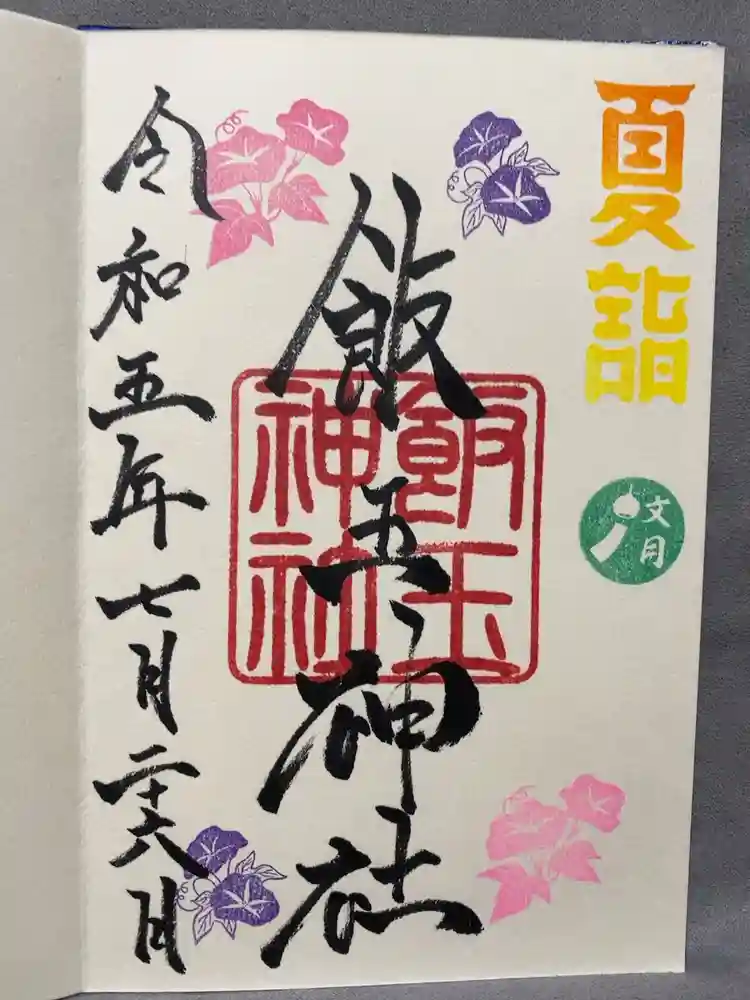 夏詣
文月
飯玉神社
飯玉
神社
令和五年七月二十六日